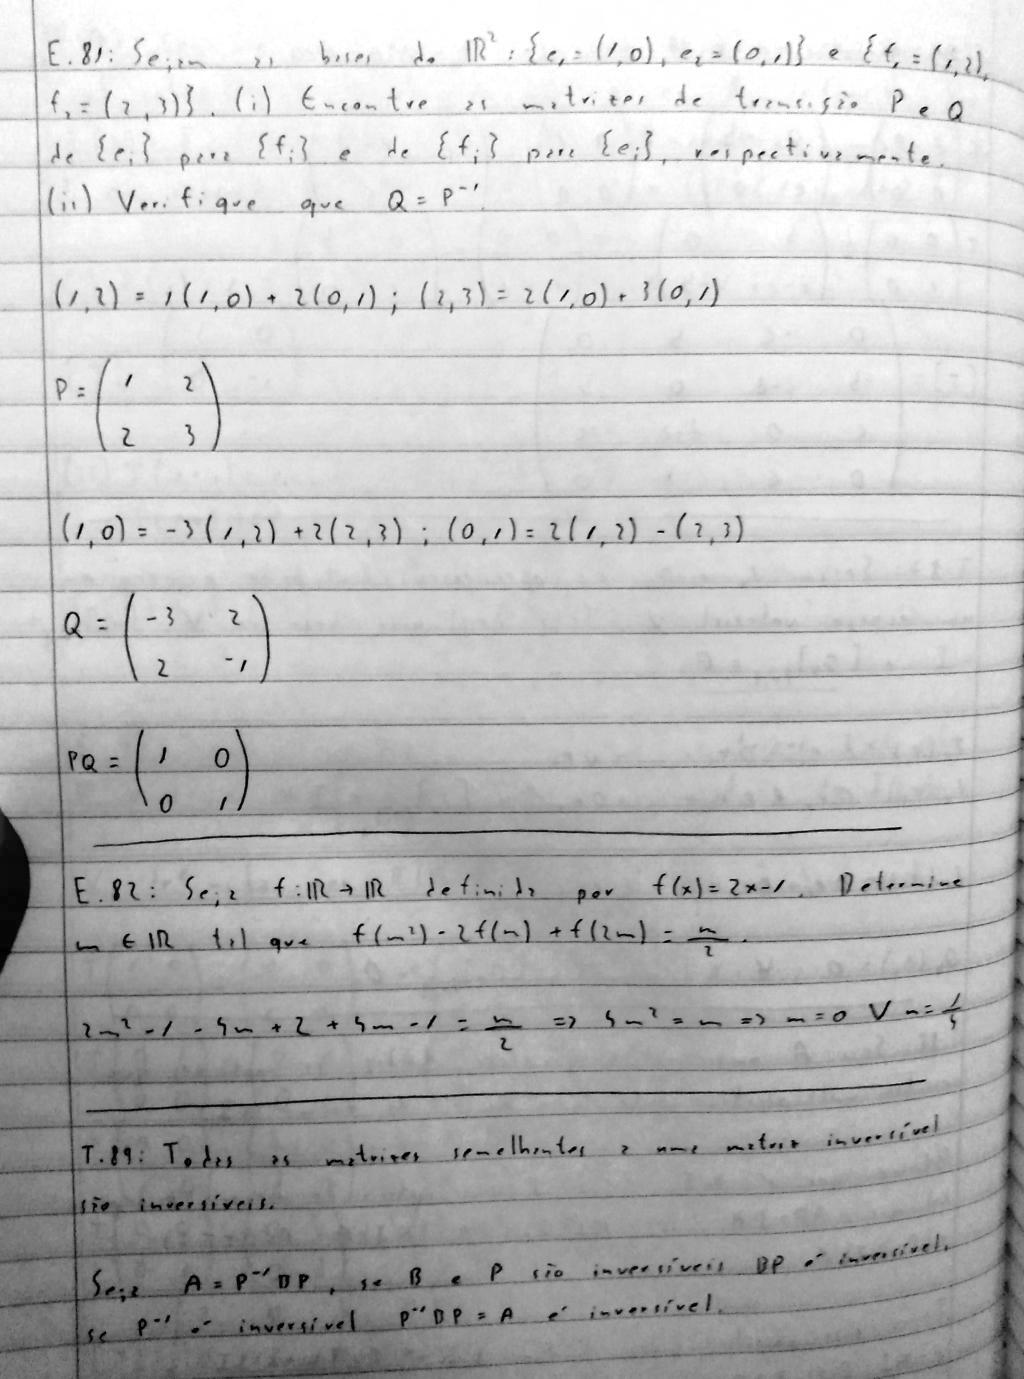 E.81: Sejam as bases do ℝ²: {e₁ = (1,0), e₂ = (0,1)} e {f₁ = (1,2),
f₂ = (2,3)}. (i) Encontre as matrizes de transição P e Q
de {eᵢ} para {fᵢ} e de {fᵢ} para {eᵢ}, respectivamente.
(ii) Verifique que Q = P⁻¹.
(1,2) = 1(1,0) + 2(0,1); (2,3) = 2(1,0) + 3(0,1)
P = ( 1 2
2 3 )
(1,0) = -3(1,2) + 2(2,3); (0,1) = 2(1,2) - (2,3)
Q = ( -3 2
2 -1 )
PQ = ( 1 0
0 1 )
E.82: Seja f: ℝ → ℝ definida por f(x) = 2x-1. Determine
m ∈ ℝ tal que f(m²) - 2f(m) + f(2m) = m/2.
2m² - 1 - 4m + 2 + 4m - 1 = m/2 => 4m² = m => m = 0 V m = 1/4
T.89: Todas as matrizes semelhantes a uma matriz inversível
são inversíveis.
Seja A = P⁻¹BP, se B e P são inversíveis BP é inversível,
se P⁻¹ é inversível P⁻¹BP = A é inversível.